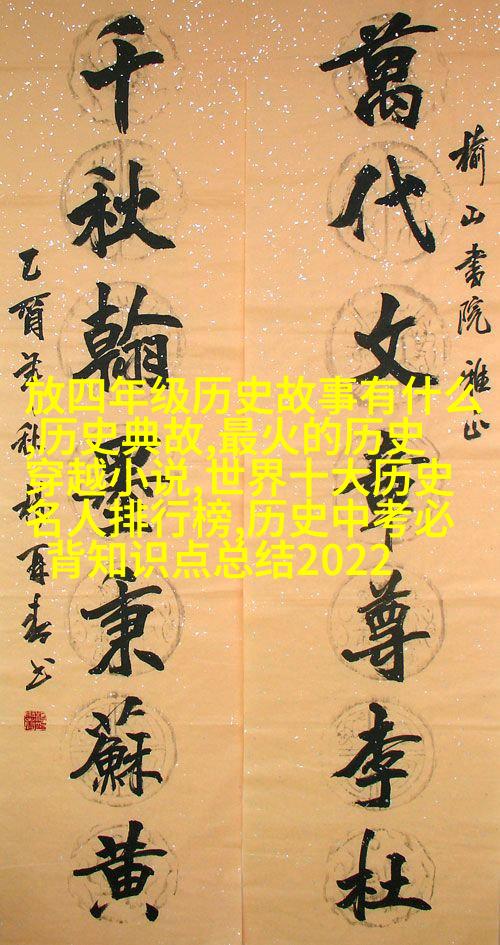 榆山書院雅正
萬代文章尊李杜
千秋翰墨秉蘇黄
乙酉秋楊再春书
放四年级历史故事有什么
,历史典故,最火的历史
穿越小说,世界十大历史
名人排行榜,历史中考必
背知识点总结2022